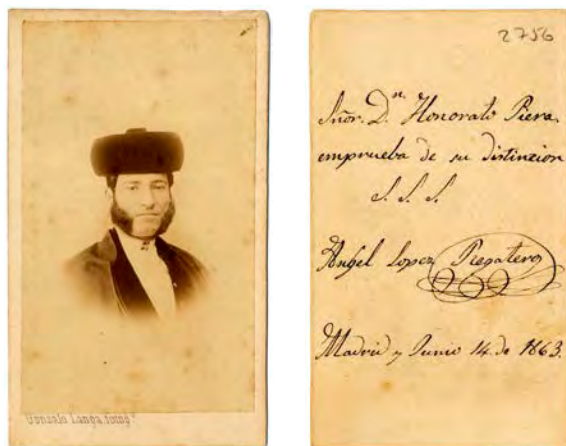 Gonzalo Langa fotogº
2756
Sñor. Dⁿ. Honorato Piera
emprueba de su distincion
S. S. S.
Angel Lopez Regatero
Madrid y Junio 14 de 1863.